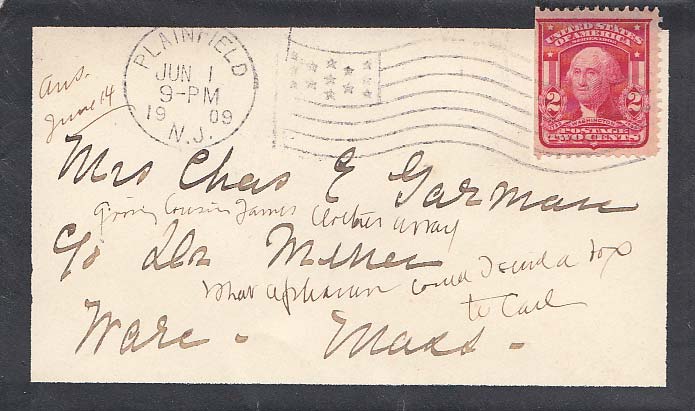 PLAINFIELD
JUN 1
9-PM
19 09
N.J.
UNITED STATES
OF AMERICA
2 2
WASHINGTON
POSTAGE
TWO CENTS
Ans.
June 14
Mrs Chas E Garman
giving Cousin James clothes away
c/o Dr Miner
What could I send a box
to Carl
Ware - Mass -